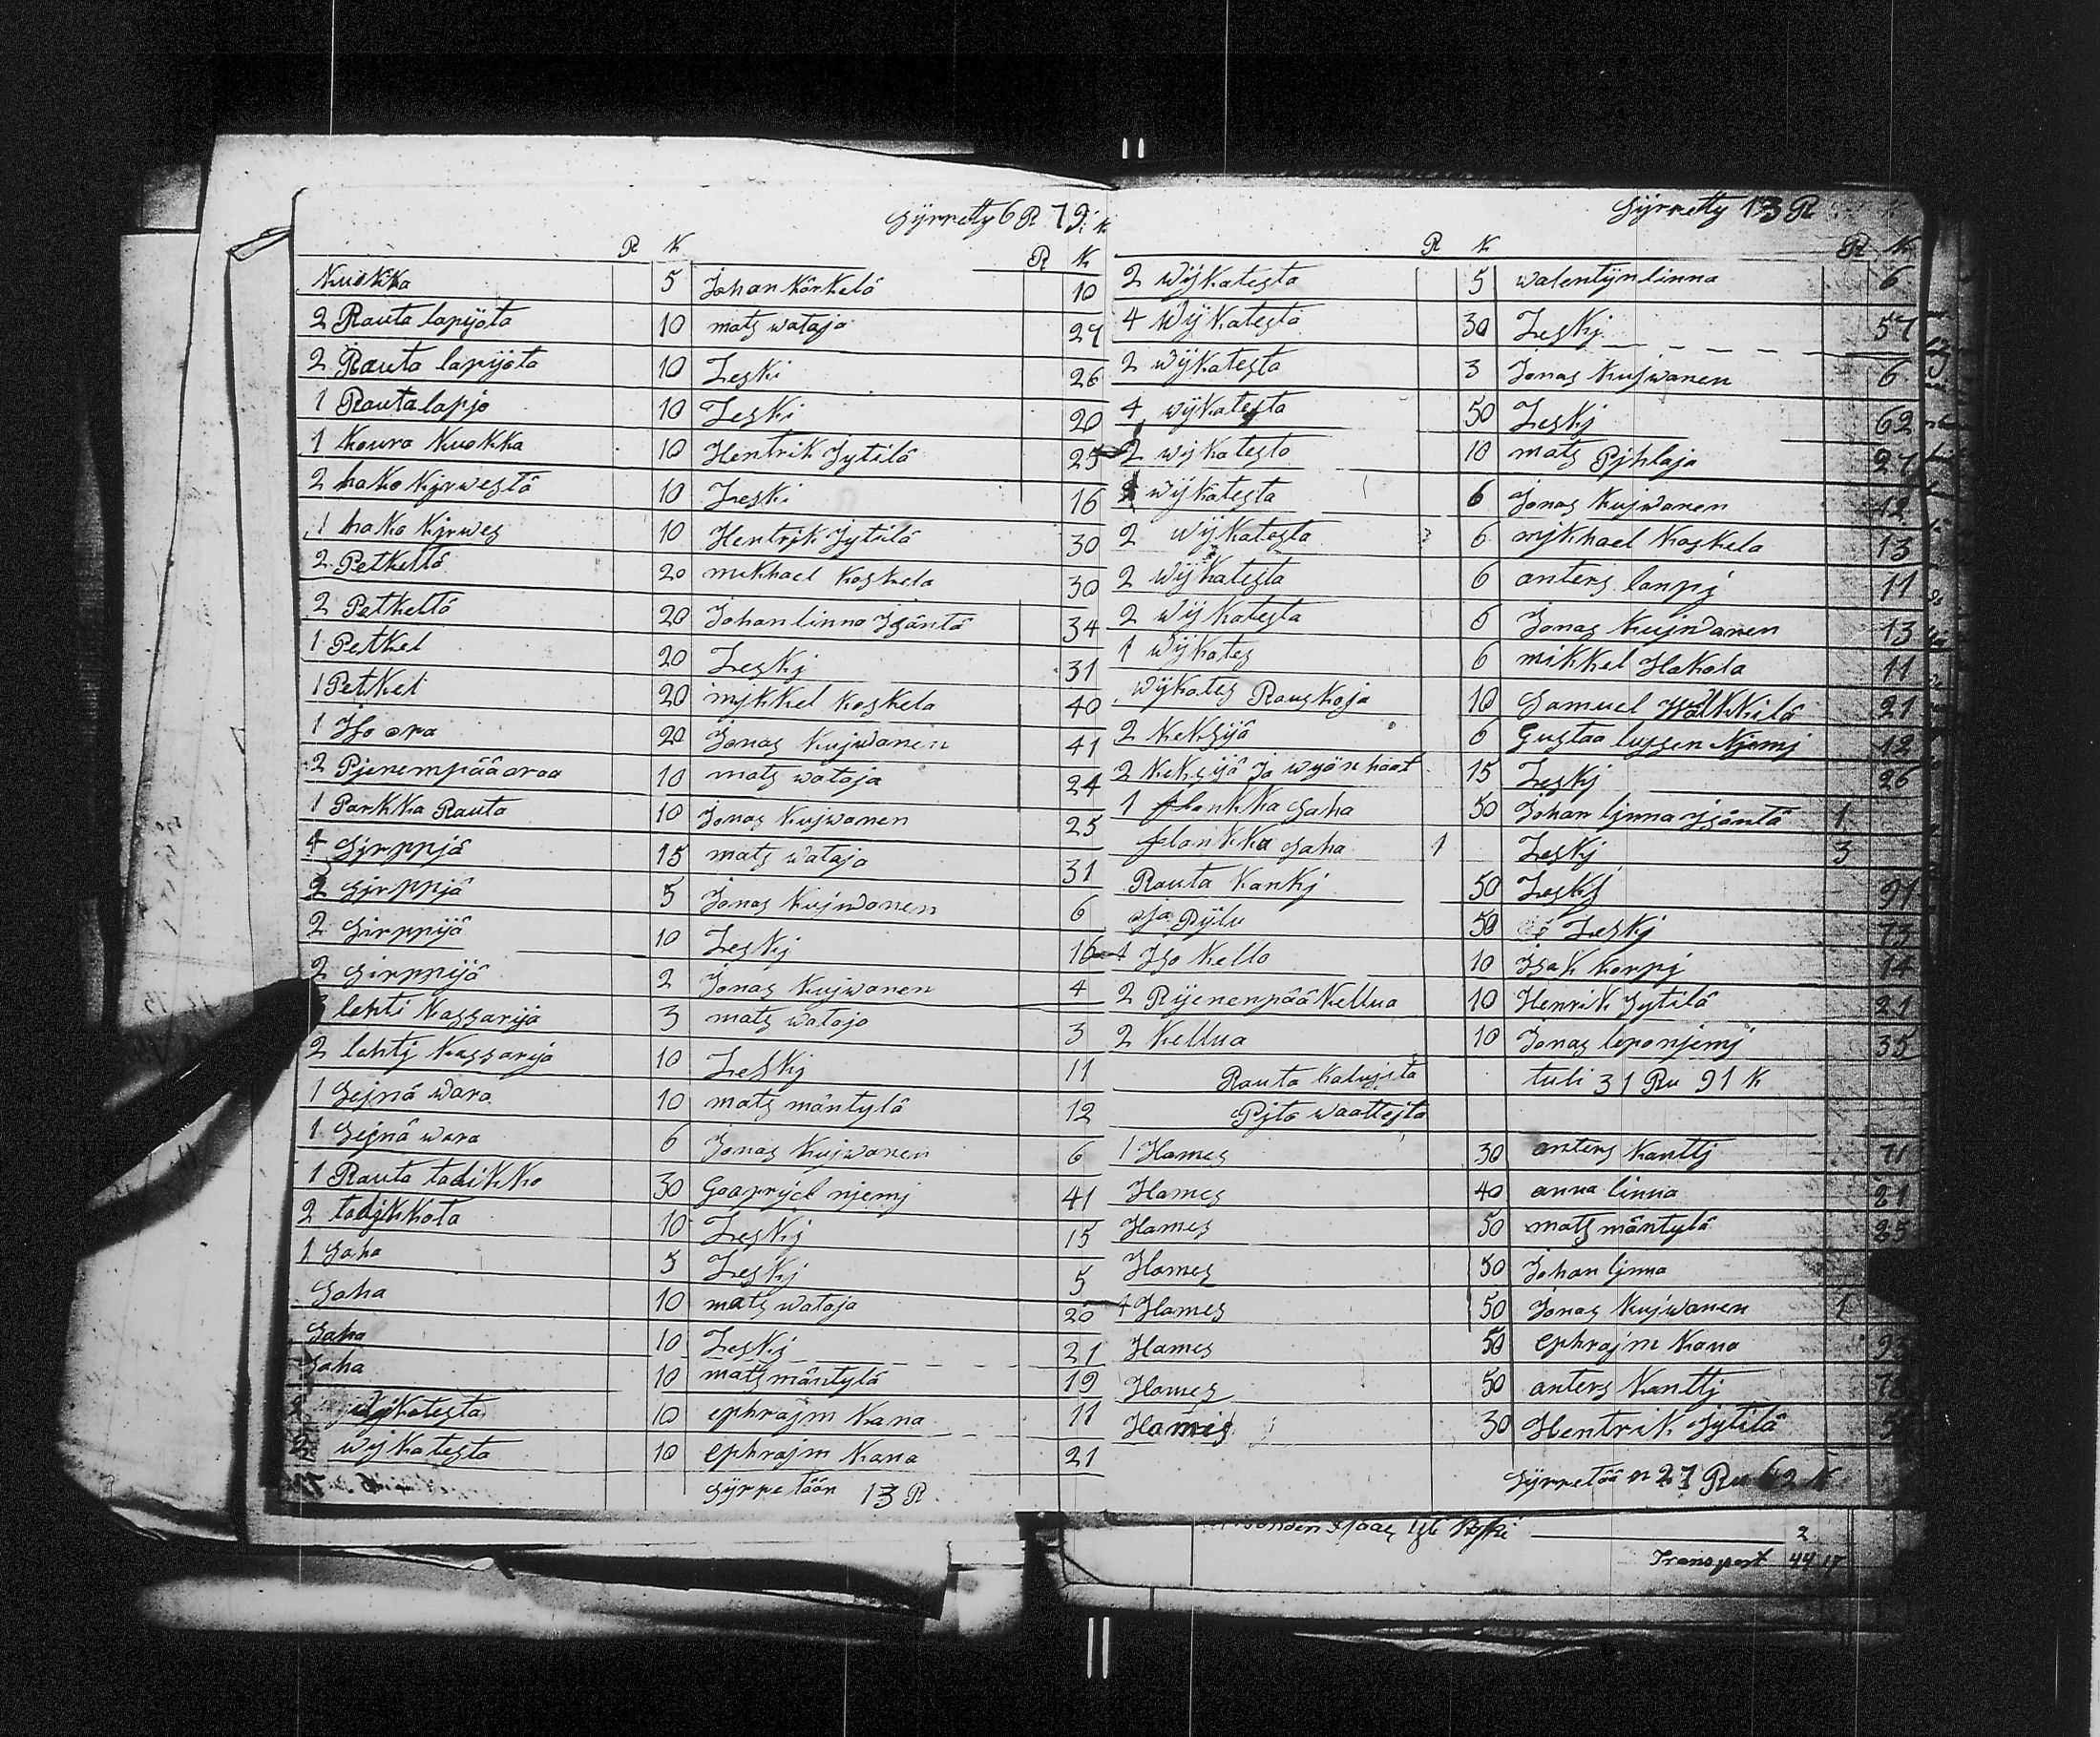 Syrretty 6 R 79 k
R K R K
Kuokka 5 Johan Kärkelä 10
2 Rauta lapijota 10 mats wataja 27
2 Rauta lapijota 10 Leski 26
1 Rautalapjo 10 Leski 20
1 Koura Kuokka 10 Hentrik Jytilä 25
2 hako Kirwestä 10 Leski 16
1 hako Kirwes 10 Hentrik Jytilä 30
2 Petkeltä 20 mikhael Koskela 30
2 Petkeltä 20 Johan linna Isäntä 34
1 Petkel 20 Leskj 31
1 Petkel 20 mjkkel Koskela 40
1 Iso ora 20 Jonas Kujwanen 41
2 Pjenempää oraa 10 mats wataja 24
1 Parkka Rauta 10 Jonas Kujwanen 25
4 Sirppjä 15 mats wataja 31
2 Sirppjä 5 Jonas Kujwanen 6
2 Sirppijä 10 Leskj 16
2 Sirppijä 2 Jonas Kujwanen 4
lehti Kassarija 3 mats wataja 3
2 lehtj Kassarija 10 Leskj 11
1 Sejnä wara 10 mats mäntylä 12
1 Sejnä wara 6 Jonas Kujwanen 6
1 Rauta tadikko 30 Gaaprijel njemj 41
2 tadjkkota 10 Leskj 15
1 Saha 5 Leskj 5
Saha 10 mats wataja 20
Saha 10 Leskj 21
Saha 10 mats mäntylä 19
wijkatesta 10 ephrajm Kana 11
2 wijkatesta 10 ephrajm Kana 21
Syrretään 13 R
Syrretty 13 R
R K R K
2 wijkatesta 5 walentijn linna 6
4 wijkatesta 30 Leskj 57
2 wijkatesta 3 Jonas Kujwanen 6
4 wijkatesta 50 Leskj 62
2 wijkatesta 10 mats Pjhlaja 27
wijkatesta 6 Jonas Kujwanen 12
2 wijkatesta 6 mjkhael Koskela 13
2 wijkatesta 6 anters lanpj 11
2 wijkatesta 6 Jonas Kujwanen 13
1 wijkates 6 mikkel Hakola 11
wijkates Rauskoja 10 Samuel Wälkkilä 21
2 Keksijä 6 Gustaa lyssen Njemj 12
2 Keksijä ja wyön haat 15 Leskj 26
1 flankka Saha 50 Johan ljnna jsäntä 1
flankka Saha 1 Leskj 3
Rauta Kankj 50 Leskj 91
oja Pijlu 50 Leskj 73
1 Iso Kello 10 Isak Korpj 14
2 Pijenenpää Kellua 10 Henrik Jytilä 21
2 Kellua 10 Jonas leponjemj 35
Rauta Kalujsta tuli 31 Ru 91 K
Pjto waattejta
1 Hames 30 anters Kanttj 71
Hames 40 anna linna 21
Hames 50 mats mäntylä 25
Hames 50 Johan ljnna
1 Hames 50 Jonas Kujwanen 1
Hames 50 ephrajm Kana
Hames 50 anters Kanttj
Hames 30 Hentrik Jytilä
Syrretään 27 Ru 62 K
2
Transport 44 17